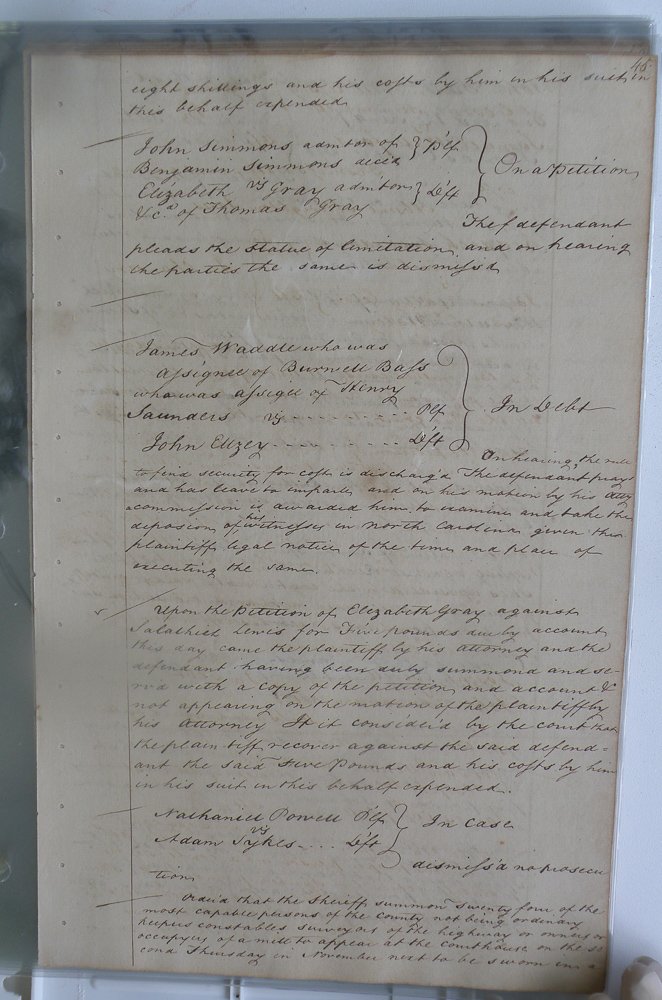 eight shillings and his costs by him in his suit in
this behalf expended
John Simmons admtor of } Plf
Benjamin Simmons decd
vs
Elizabeth Gray admtor } Deft
&c.a of Thomas Gray
On a Petition
The defendant
pleads the Statue of limitation, and on hearing
the parties the same is dismissd
James Waddle who was
assignee of Burwell Bass
who was assigee of Henry
Saunders vs - - - - - - - - Plf
John Ellzey - - - - - - - - - Deft
In Debt
On hearing, the rule
to find security for costs is discharg'd The defendant prays
and has leave to imparle and on his motion by his atty
a commission is awarded him to examine and take the
deposion of his witnesses in North Carolina given the
plaintiff legal notice of the time and place of
executing the same.
Upon the Petition of Elizabeth Gray against
Salathiel Lewis for Five pounds due by account
this day came the plaintiff by his attorney and the
defendant having been duly summond and se-
rvd with a copy of the petition and account &
not appearing on the motion of the plaintiff by
his attorney It is consider'd by the court that
the plaintiff recover against the said defend=
ant the said Five Pounds and his costs by him
in his suit in this behalf expended.
Nathaniel Powell Plf
vs
Adam Sykes .... Deft
In Case
dismiss'd no prosecu
tion
Ordrd that the Sheriff summon Twenty four of the
most capable persons of the county not being ordinary
keepers constables surveyors of the highway or owners or
occupyers of a mill to appear at the courthouse on the se
cond Thursday in November next to be sworn in a